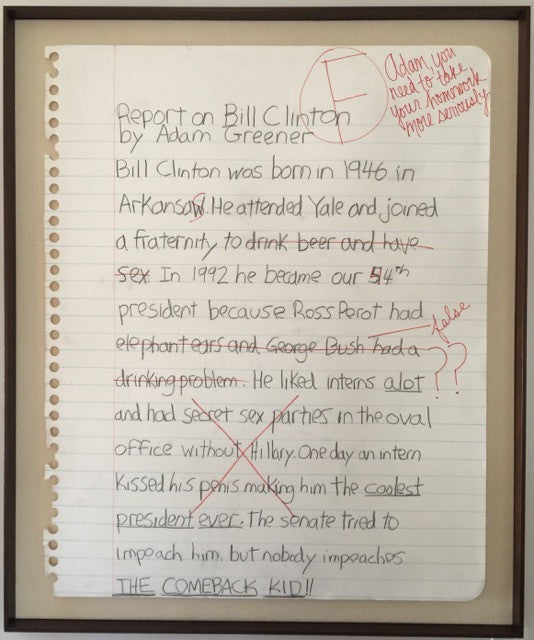 F
Adam, you
need to take
your homework
more seriously
Report on Bill Clinton
by Adam Greener
Bill Clinton was born in 1946 in
Arkansaw. He attended Yale and joined
a fraternity to drink beer and have
sex In 1992 he became our 54th
president because Ross Perot had
false
elephant ears and George Bush had a
??
drinking problem. He liked interns alot
and had secret sex parties in the oval
office without Hillary. One day an intern
kissed his penis making him the coolest
president ever. The senate tried to
impeach him. but nobody impeaches
THE COMEBACK KID!!